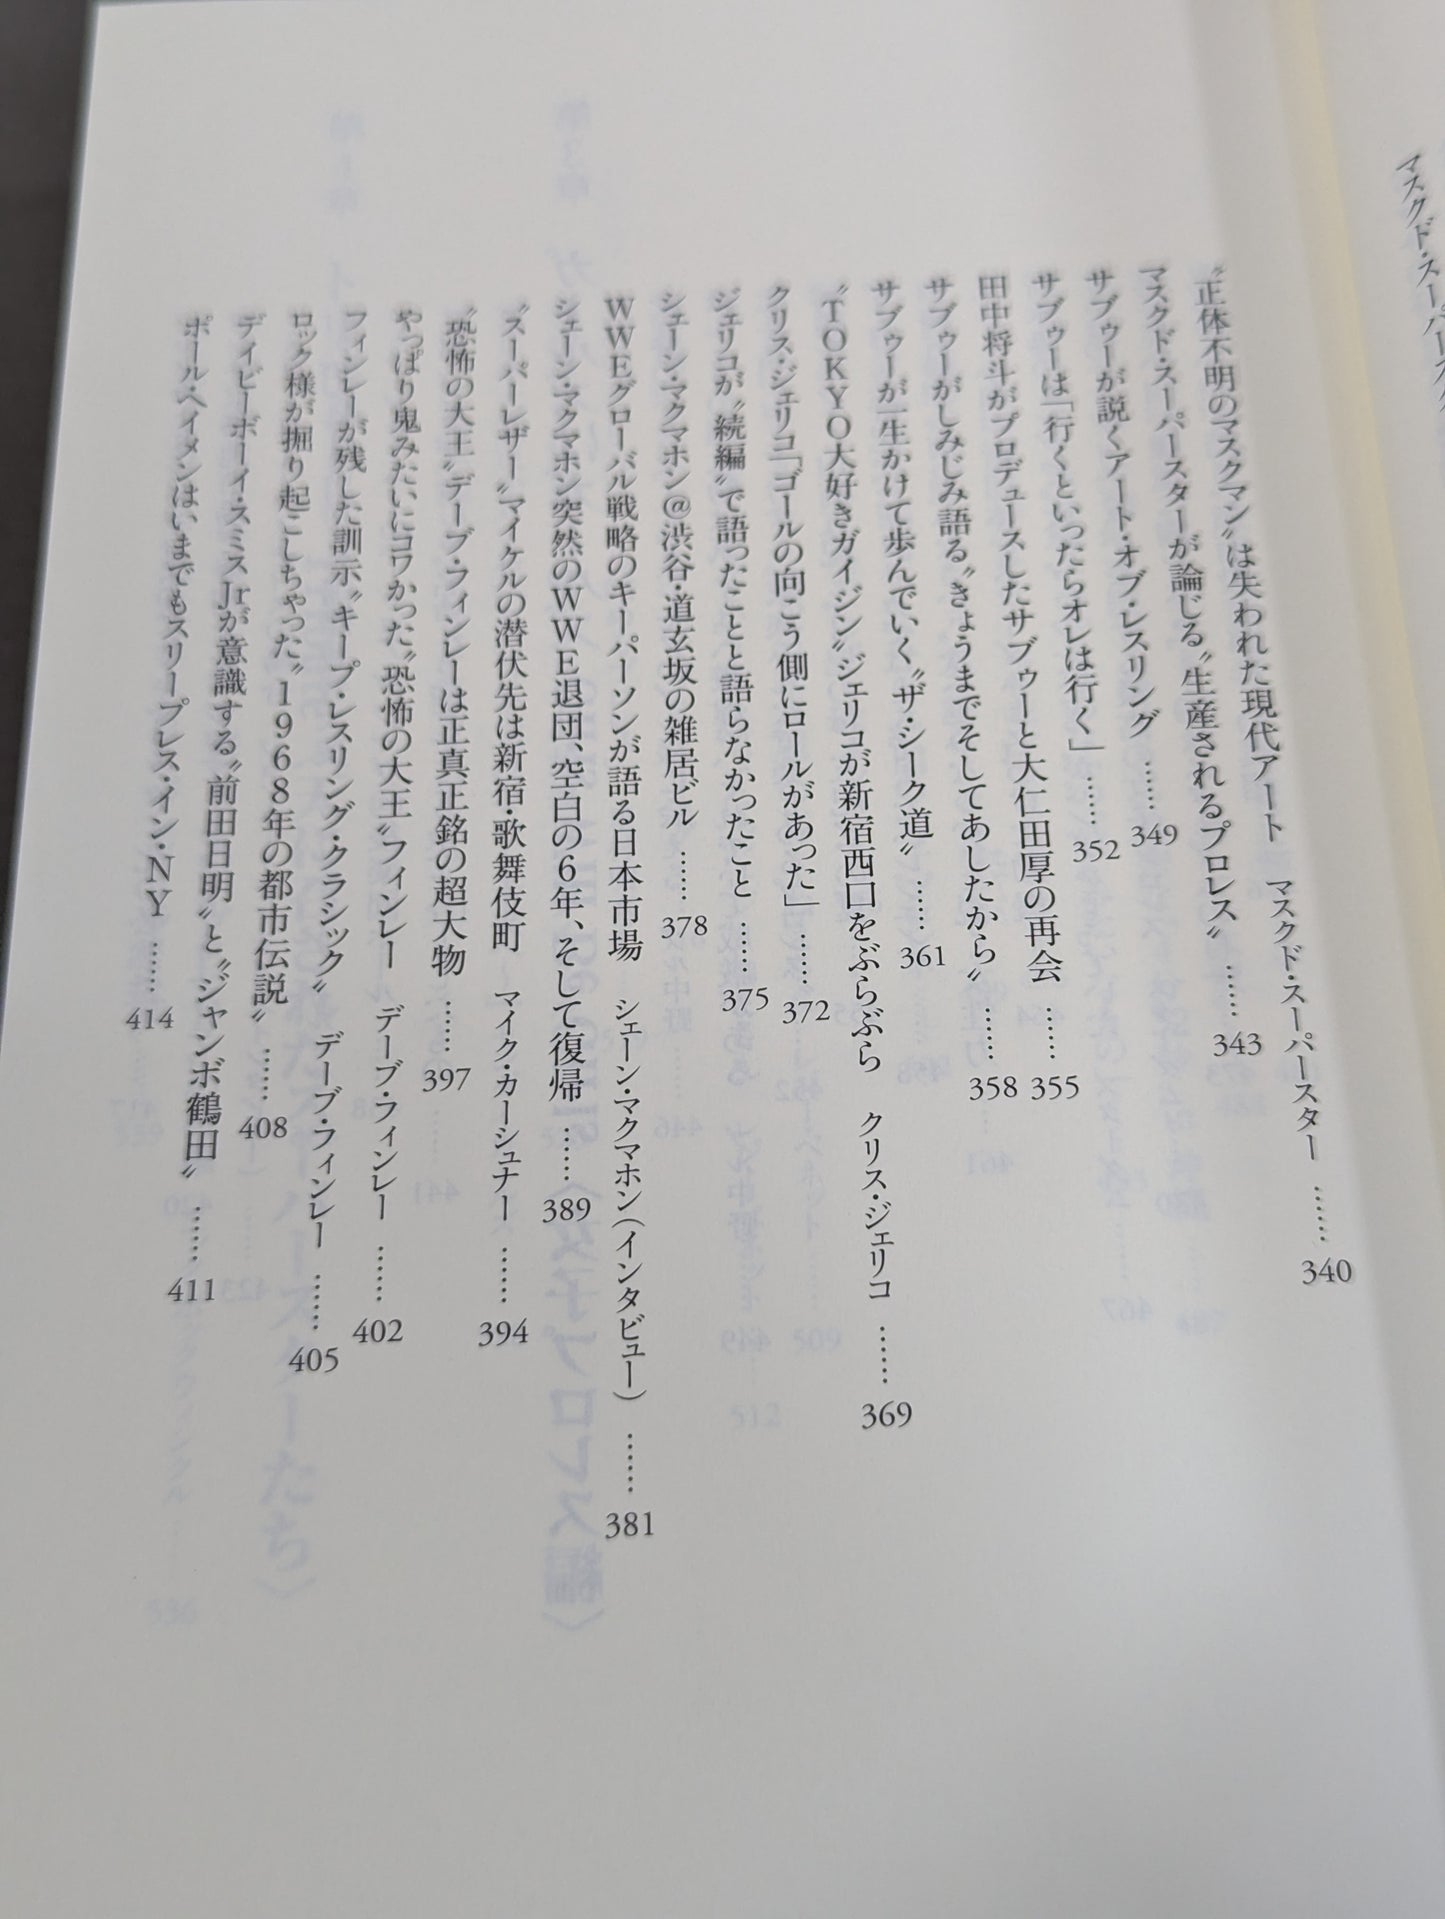 マスクド・スーパースター
〝正体不明のマスクマン〟は失われた現代アート　マスクド・スーパースター ……340
マスクド・スーパースターが論じる〝生産されるプロレス〟 ……343
サブゥーが説くアート・オブ・レスリング ……349
サブゥーは「行くといったらオレは行く」 ……352
田中将斗がプロデュースしたサブゥーと大仁田厚の再会 ……355
サブゥーがしみじみ語る〝きょうまでそしてあしたから〟 ……358
サブゥーが一生かけて歩んでいく〝ザ・シーク道〟 ……361
〝TOKYO大好きガイジン〟ジェリコが新宿西口をぶらぶら　クリス・ジェリコ ……369
クリス・ジェリコ「ゴールの向こう側にロールがあった」 ……372
ジェリコが〝続編〟で語ったことと語らなかったこと ……375
シェーン・マクマホン@渋谷・道玄坂の雑居ビル ……378
WWEグローバル戦略のキーパーソンが語る日本市場　シェーン・マクマホン（インタビュー） ……381
シェーン・マクマホン突然のWWE退団、空白の6年、そして復帰 ……389
〝スーパーレザー〟マイケルの潜伏先は新宿・歌舞伎町　マイク・カーシュナー ……394
〝恐怖の大王〟デーブ・フィンレーは正真正銘の超大物 ……397
やっぱり鬼みたいにコワかった〝恐怖の大王〟フィンレー　デーブ・フィンレー ……402
フィンレーが残した訓示〝キープ・レスリング・クラシック〟　デーブ・フィンレー ……405
ロック様が掘り起こしちゃった〝1968年の都市伝説〟 ……408
デイビーボーイ・スミスJrが意識する〝前田日明〟と〝ジャンボ鶴田〟 ……411
ポール・ヘイメンはいまでもスリープレス・イン・NY ……414